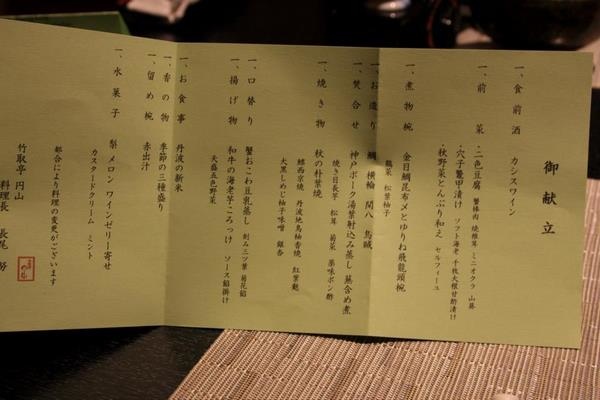 御献立
一、食前酒　カシスワイン
一、前菜　・二色豆腐　蟹棒肉　焼椎茸　ミニオクラ　山葵
・穴子鼈甲漬け　ソフト海老　千枚大根甘酢漬け
・秋野菜とんぶり和え　セルフィーユ
一、煮物椀　金目鯛昆布〆とゆりね飛龍頭椀
鶴菜　松葉柚子
一、お造り　鯛　横輪　間八　烏賊
一、焚合せ　神戸ポーク湯葉射込み蒸し　蕪含め煮
焼き旧長芋　松茸　菊菜　薬味ポン酢
一、焼き物　秋の朴葉焼
鰆西京焼　丹波地鳥柚香焼　紅葉麩
大黒しめじ柚子味噌　銀杏
一、口替り　蟹おこわ豆乳蒸し　刻み三ツ葉　菊花餡
一、揚げ物　和牛の海老芋ころっけ　ソース餡掛け
天盛五色野菜
一、お食事　丹波の新米
一、香の物　季節の三種盛り
一、留め椀　赤出汁
一、水菓子　梨　メロン　ワインゼリー寄せ
カスタードクリーム　ミント
都合により料理の変更がございます
竹取亭　円山
料理長　長尾　努